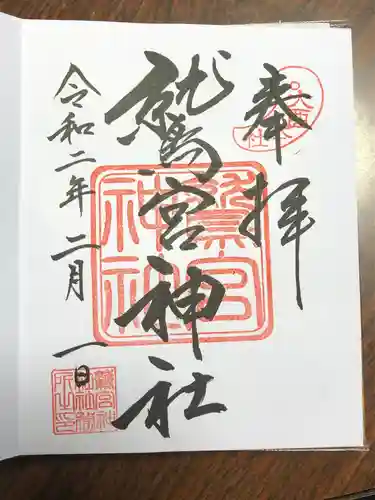 奉拝
鷲宮神社
令和二年二月一日
鷲宮
神社